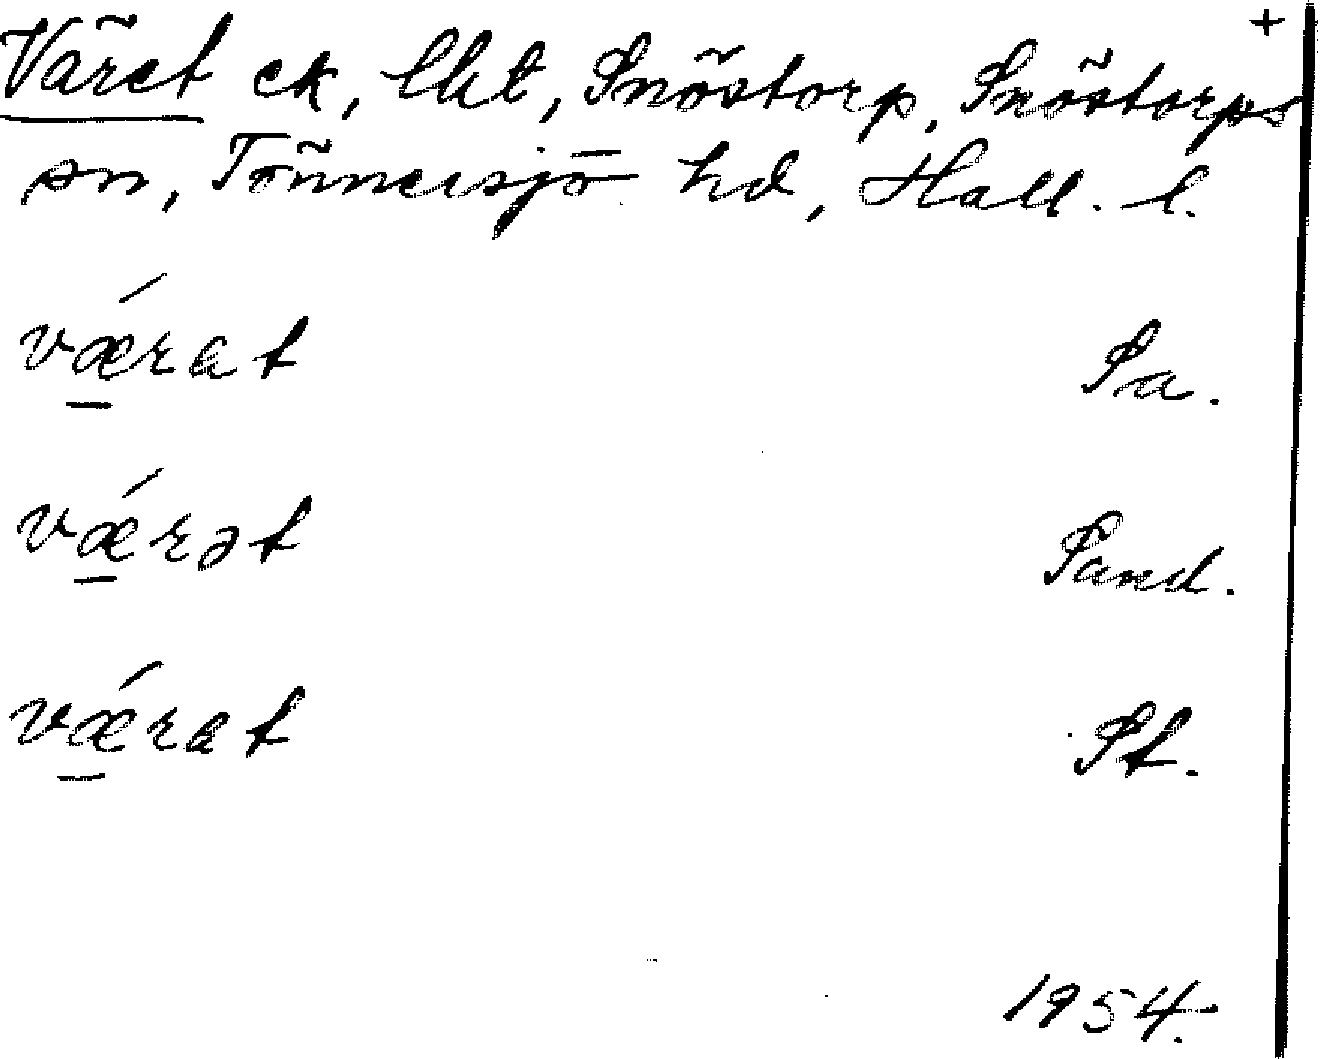 +
Väret ek, lht, Snöstorp, Snöstorps
sn, Tönnersjö hd, Hall. l.
vǽ̠rat Sa.
vǽ̠rət Sand.
vǽ̠rat St.
1954.